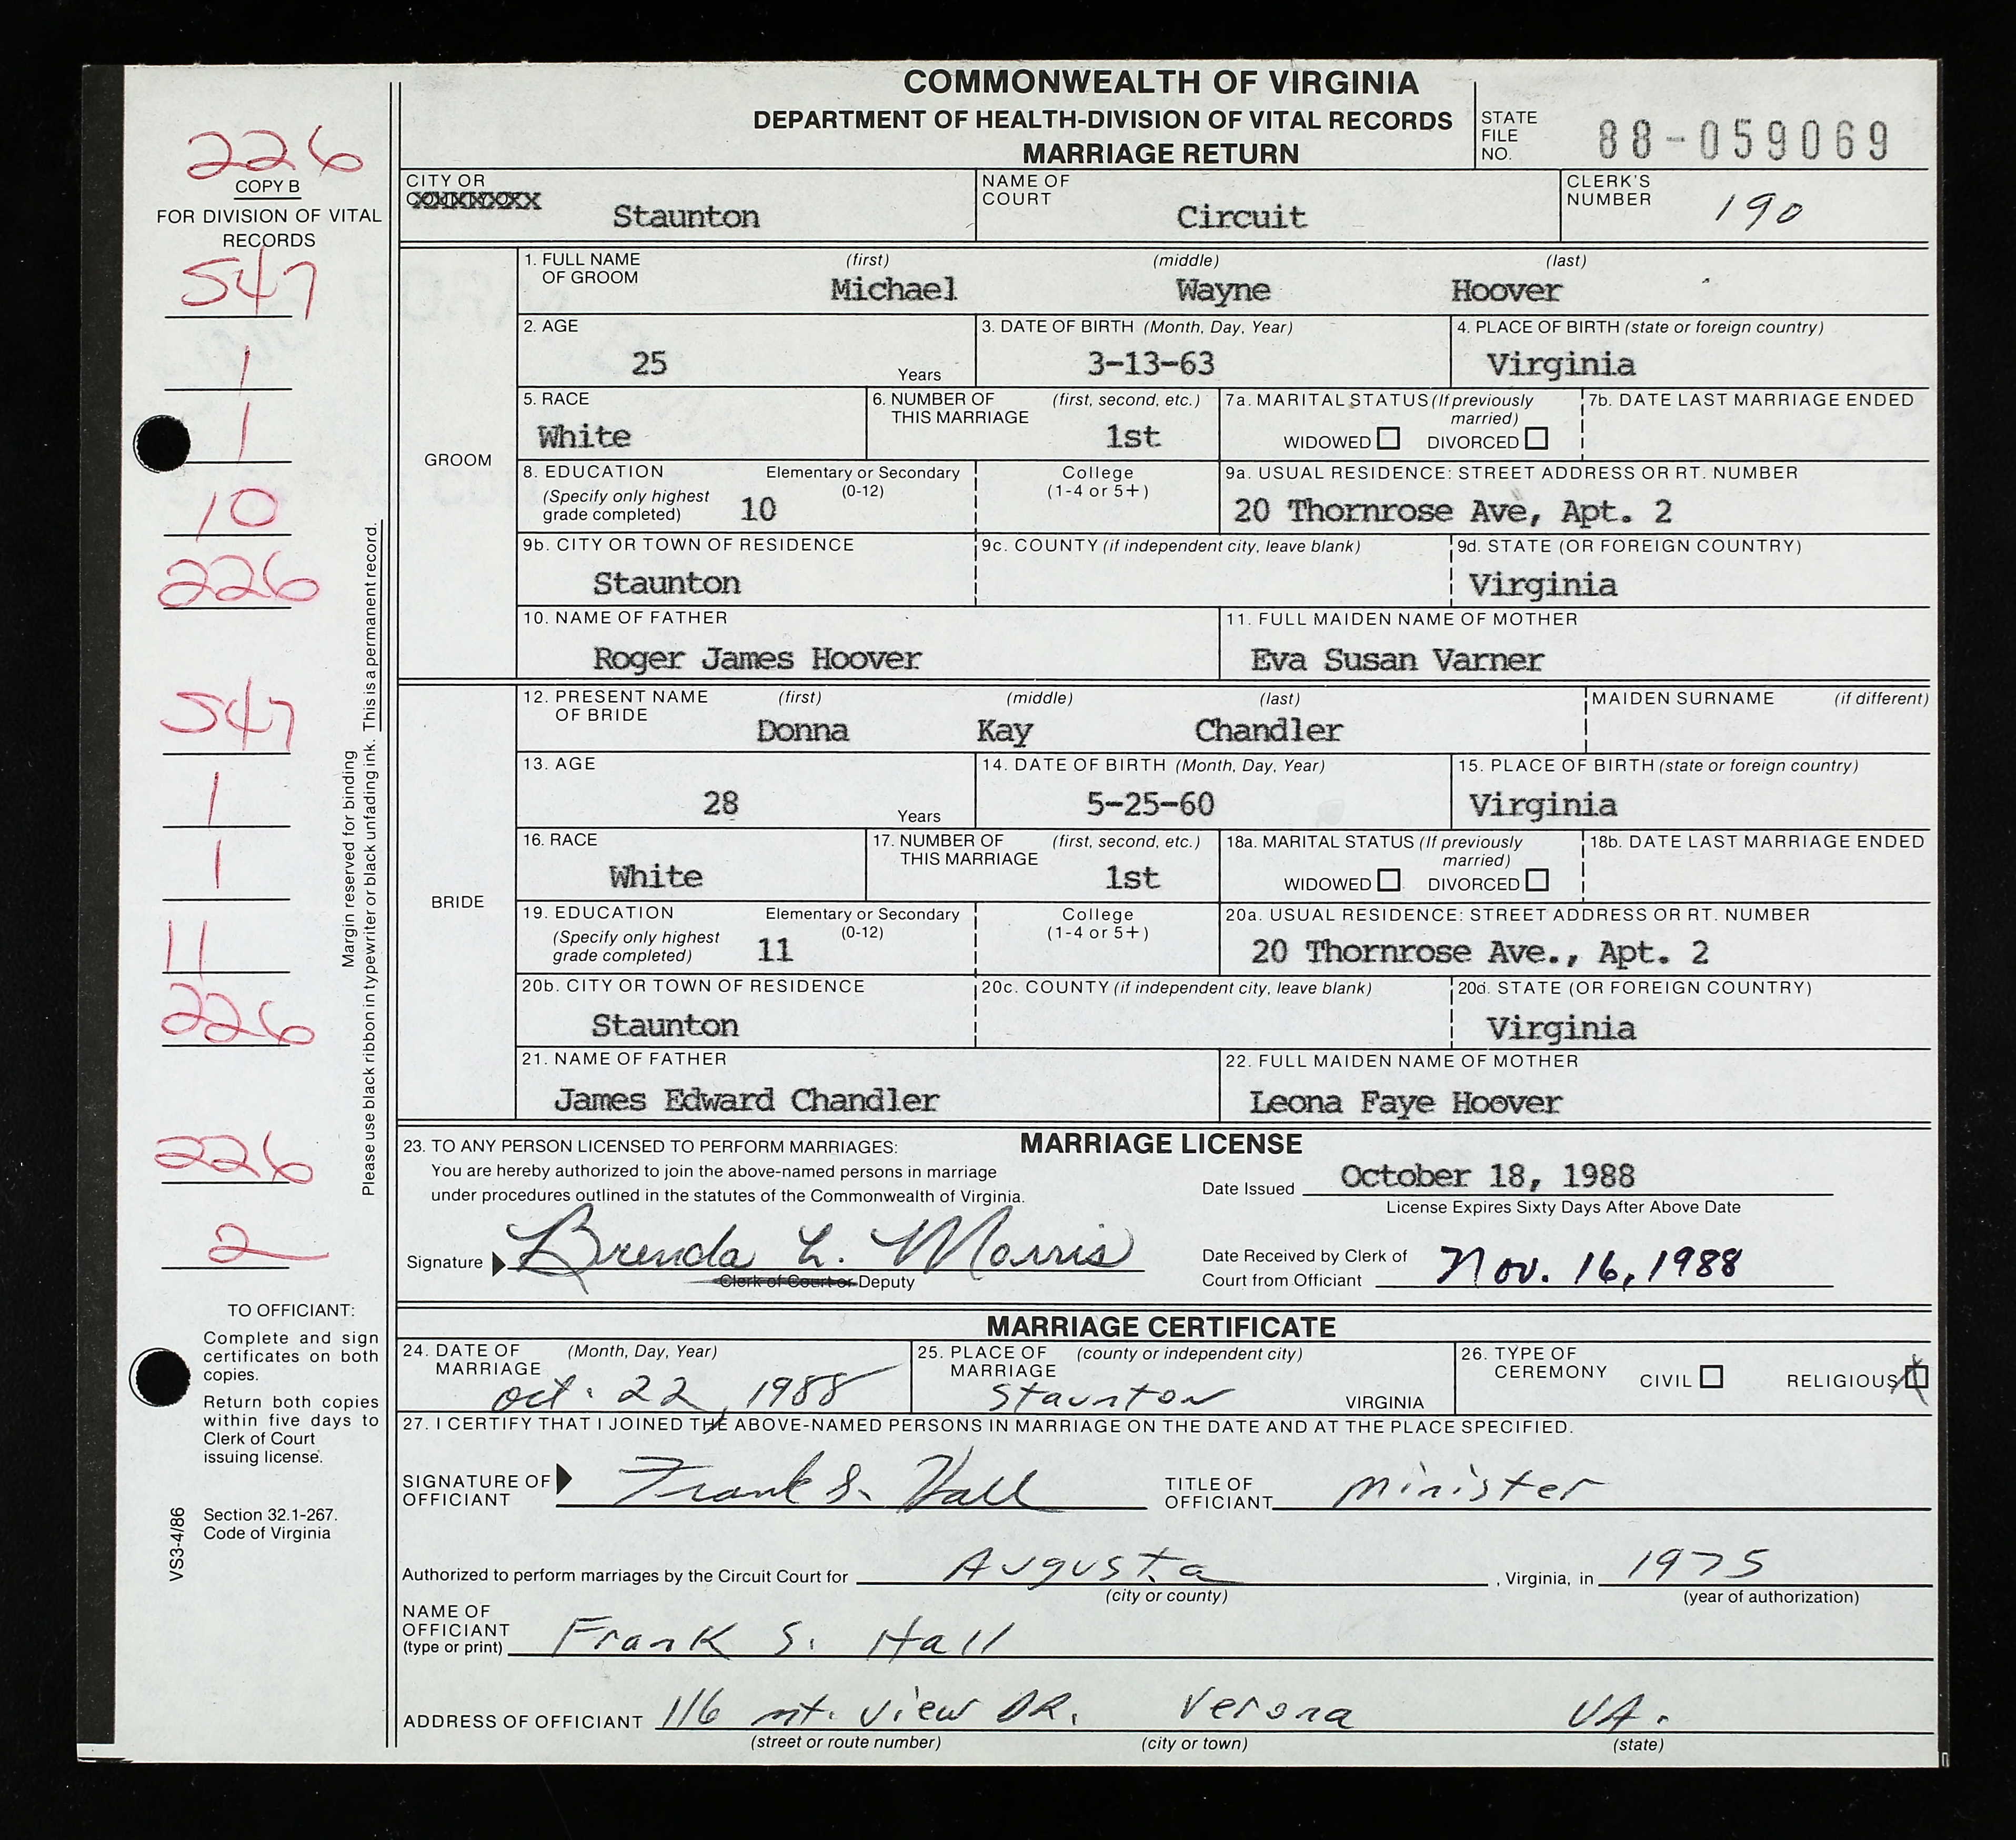 COMMONWEALTH OF VIRGINIA
DEPARTMENT OF HEALTH-DIVISION OF VITAL RECORDS
MARRIAGE RETURN
STATE FILE NO. 88-059069
226
COPY B
FOR DIVISION OF VITAL RECORDS
547
1
1
10
226
547
1
1
11
226
226
2
Margin reserved for binding
Please use black ribbon in typewriter or black unfading ink. This is a permanent record.
TO OFFICIANT:
Complete and sign
certificates on both
copies.
Return both copies
within five days to
Clerk of Court
issuing license.
Section 32.1-267.
Code of Virginia
VS3-4/86
CITY OR XXXXXXXX Staunton
NAME OF COURT Circuit
CLERK'S NUMBER 190
GROOM
1. FULL NAME OF GROOM (first) Michael (middle) Wayne (last) Hoover
2. AGE 25 Years
3. DATE OF BIRTH (Month, Day, Year) 3-13-63
4. PLACE OF BIRTH (state or foreign country) Virginia
5. RACE White
6. NUMBER OF THIS MARRIAGE (first, second, etc.) 1st
7a. MARITAL STATUS (If previously married) WIDOWED DIVORCED
7b. DATE LAST MARRIAGE ENDED
8. EDUCATION (Specify only highest grade completed) Elementary or Secondary (0-12) 10 College (1-4 or 5+)
9a. USUAL RESIDENCE: STREET ADDRESS OR RT. NUMBER 20 Thornrose Ave, Apt. 2
9b. CITY OR TOWN OF RESIDENCE Staunton
9c. COUNTY (if independent city, leave blank)
9d. STATE (OR FOREIGN COUNTRY) Virginia
10. NAME OF FATHER Roger James Hoover
11. FULL MAIDEN NAME OF MOTHER Eva Susan Varner
BRIDE
12. PRESENT NAME OF BRIDE (first) Donna (middle) Kay (last) Chandler MAIDEN SURNAME (if different)
13. AGE 28 Years
14. DATE OF BIRTH (Month, Day, Year) 5-25-60
15. PLACE OF BIRTH (state or foreign country) Virginia
16. RACE White
17. NUMBER OF THIS MARRIAGE (first, second, etc.) 1st
18a. MARITAL STATUS (If previously married) WIDOWED DIVORCED
18b. DATE LAST MARRIAGE ENDED
19. EDUCATION (Specify only highest grade completed) Elementary or Secondary (0-12) 11 College (1-4 or 5+)
20a. USUAL RESIDENCE: STREET ADDRESS OR RT. NUMBER 20 Thornrose Ave., Apt. 2
20b. CITY OR TOWN OF RESIDENCE Staunton
20c. COUNTY (if independent city, leave blank)
20d. STATE (OR FOREIGN COUNTRY) Virginia
21. NAME OF FATHER James Edward Chandler
22. FULL MAIDEN NAME OF MOTHER Leona Faye Hoover
MARRIAGE LICENSE
23. TO ANY PERSON LICENSED TO PERFORM MARRIAGES:
You are hereby authorized to join the above-named persons in marriage
under procedures outlined in the statutes of the Commonwealth of Virginia.
Date Issued October 18, 1988
License Expires Sixty Days After Above Date
Signature Brenda L. Morris
Clerk of Court or Deputy
Date Received by Clerk of Court from Officiant Nov. 16, 1988
MARRIAGE CERTIFICATE
24. DATE OF MARRIAGE (Month, Day, Year) Oct. 22, 1988
25. PLACE OF MARRIAGE (county or independent city) Staunton VIRGINIA
26. TYPE OF CEREMONY CIVIL RELIGIOUS
27. I CERTIFY THAT I JOINED THE ABOVE-NAMED PERSONS IN MARRIAGE ON THE DATE AND AT THE PLACE SPECIFIED.
SIGNATURE OF OFFICIANT Frank S. Hall TITLE OF OFFICIANT Minister
Authorized to perform marriages by the Circuit Court for Augusta, Virginia, in 1975
(city or county) (year of authorization)
NAME OF OFFICIANT (type or print) Frank S. Hall
ADDRESS OF OFFICIANT 116 Mt. View DR. Verona VA.
(street or route number) (city or town) (state)